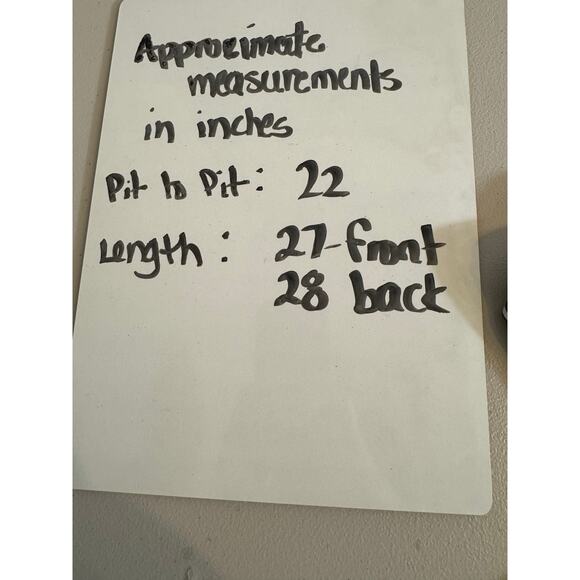 Approximate
measurements
in inches
Pit to Pit: 22
Length: 27-front
28 back